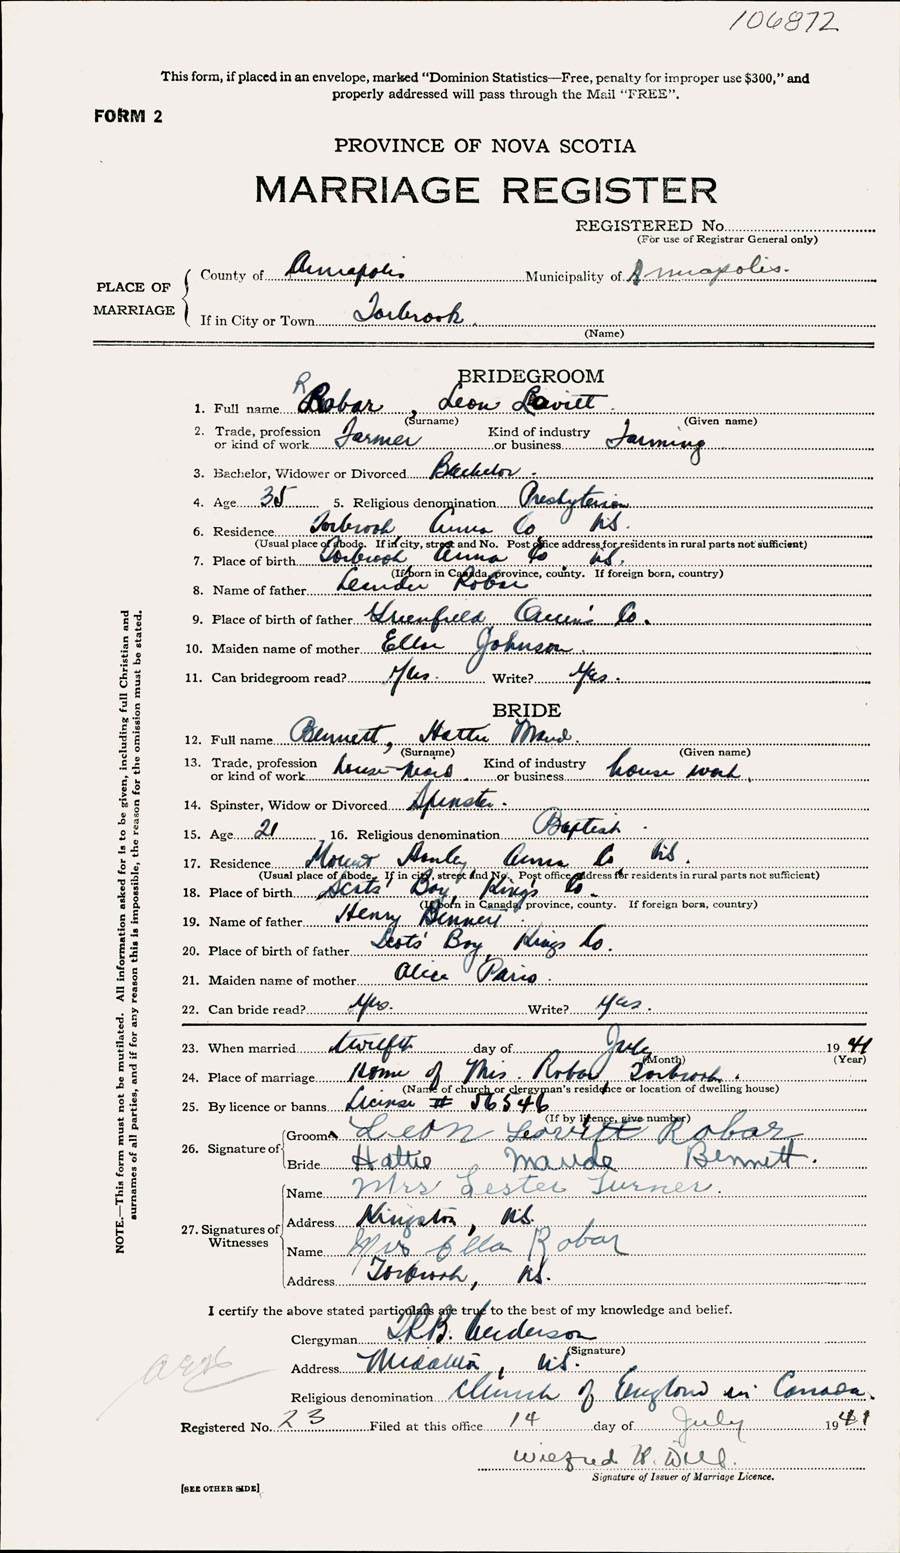 106872
This form, if placed in an envelope, marked “Dominion Statistics—Free, penalty for improper use $300,” and
properly addressed will pass through the Mail “FREE”.
FORM 2
PROVINCE OF NOVA SCOTIA
MARRIAGE REGISTER
REGISTERED No.
(For use of Registrar General only)
PLACE OF MARRIAGE
County of Annapolis Municipality of Annapolis.
If in City or Town Torbrook.
(Name)
BRIDEGROOM
R
1. Full name Robar, Leon Lavitt.
(Surname) (Given name)
2. Trade, profession or kind of work Farmer Kind of industry or business Farming
3. Bachelor, Widower or Divorced Bachelor.
4. Age 35 5. Religious denomination Presbyterian
6. Residence Torbrook Anna Co NS.
(Usual place of abode. If in city, street and No. Post office address for residents in rural parts not sufficient)
7. Place of birth Torbrook Anna Co. NS.
(If born in Canada, province, county. If foreign born, country)
8. Name of father Leander Robar
9. Place of birth of father Greenfield Queen's Co.
10. Maiden name of mother Ella Johnson.
11. Can bridegroom read? Yes. Write? Yes.
BRIDE
12. Full name Bennett, Hattie Maud.
(Surname) (Given name)
13. Trade, profession or kind of work house-maid. Kind of industry or business house work.
14. Spinster, Widow or Divorced Spinster.
15. Age 21 16. Religious denomination Baptist.
17. Residence Mount Hanley Anna Co NS.
(Usual place of abode. If in city, street and No. Post office address for residents in rural parts not sufficient)
18. Place of birth Scots' Bay, King's Co.
(If born in Canada, province, county. If foreign born, country)
19. Name of father Henry Bennett.
20. Place of birth of father Scots' Bay, Kings Co.
21. Maiden name of mother Alice Paris.
22. Can bride read? Yes. Write? Yes.
23. When married twelfth day of July 1941
(Month) (Year)
24. Place of marriage Home of Mrs. Robar Torbrook.
(Name of church or clergyman's residence or location of dwelling house)
25. By licence or banns License # 56546
(If by licence, give number)
26. Signature of
Groom Leon Leavitt Robar
Bride Hattie Maude Bennett.
27. Signatures of Witnesses
Name Mrs Lester Turner.
Address Kingston, NS.
Name Mrs Ella Robar
Address Torbrook, NS.
NOTE.—This form must not be mutilated. All information asked for is to be given, including full Christian and
surnames of all parties, and if for any reason this is impossible, the reason for the omission must be stated.
I certify the above stated particulars are true to the best of my knowledge and belief.
Clergyman Anderson
(Signature)
Address Middleton, NS.
Religious denomination Church of England in Canada.
Registered No. 23 Filed at this office 14 day of July 1941
Wilfred
Signature of Issuer of Marriage Licence.
[SEE OTHER SIDE]